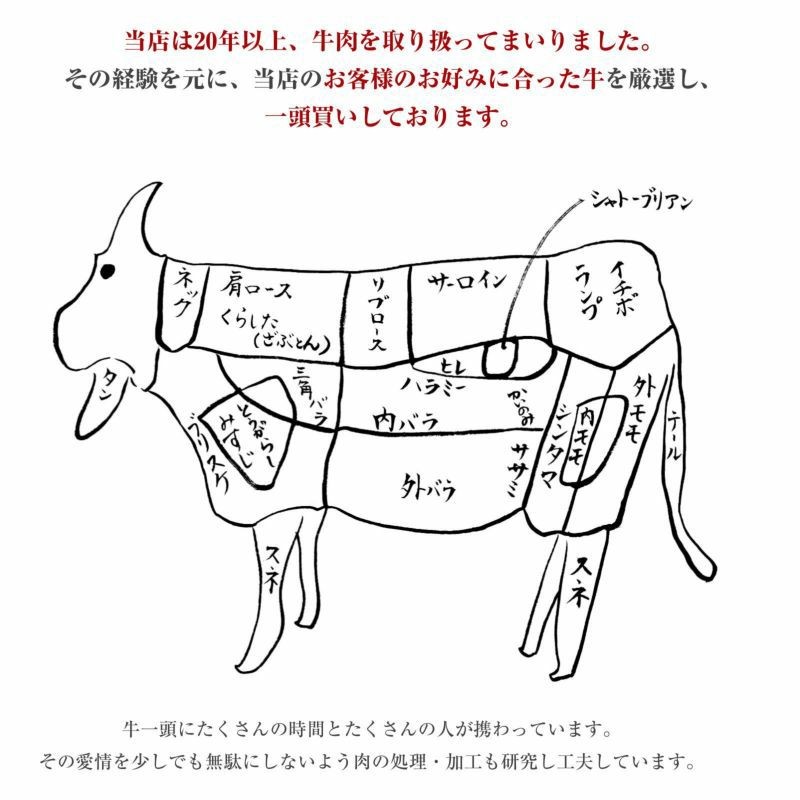 当店は20年以上、牛肉を取り扱ってまいりました。
その経験を元に、当店のお客様のお好みに合った牛を厳選し、
一頭買いしております。
シャトーブリアン
ネック
肩ロース
くらした
(ざぶとん)
リブロース
サーロイン
ランプ
イチボ
ヒレ
ハラミー
タン
三角バラ
内バラ
かいのみ
ブリスケ
とうがらし
みすじ
外バラ
ササミ
シンタマ
内モモ
外モモ
テール
スネ
スネ
牛一頭にたくさんの時間とたくさんの人が携わっています。
その愛情を少しでも無駄にしないよう肉の処理・加工も研究し工夫しています。